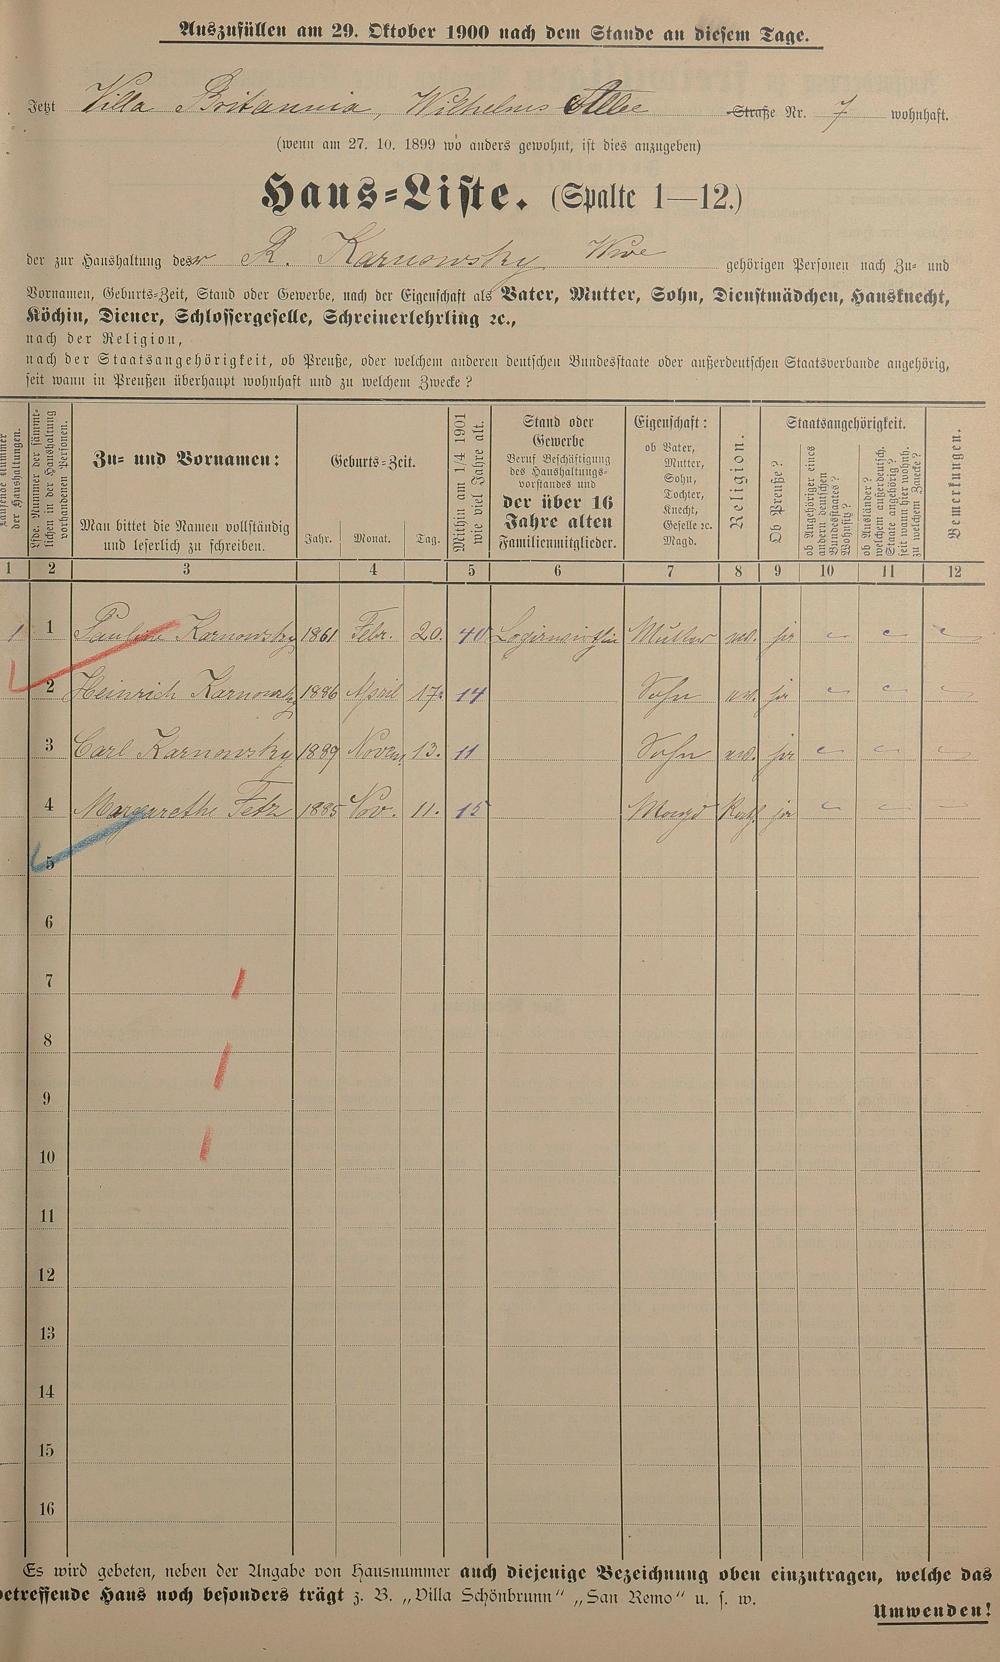 Auszufüllen am 29. Oktober 1900 nach dem Stande an diesem Tage.
Jetzt Villa Britannia, Wilhelms Allee Straße Nr. 7 wohnhaft.
(wenn am 27. 10. 1899 wo anders gewohnt, ist dies anzugeben)
Haus-Liste. (Spalte 1—12.)
der zur Haushaltung der R. Karnowsky Wwe gehörigen Personen nach Zu- und
Vornamen, Geburts-Zeit, Stand oder Gewerbe, nach der Eigenschaft als Vater, Mutter, Sohn, Dienstmädchen, Hausknecht,
Köchin, Diener, Schlossergeselle, Schreinerlehrling ꝛc.,
nach der Religion,
nach der Staatsangehörigkeit, ob Preuße, oder welchem anderen deutschen Bundesstaate oder außerdeutschen Staatsverbande angehörig,
seit wann in Preußen überhaupt wohnhaft und zu welchem Zwecke?
Laufende Nummer der Haushaltungen.
Lfde. Nummer der sämmtlichen in der Haushaltung vorhandenen Personen.
Zu- und Vornamen:
Man bittet die Namen vollständig
und leserlich zu schreiben.
Geburts-Zeit.
Jahr. Monat. Tag.
Mithin am 1/4 1901
wie viel Jahre alt.
Stand oder
Gewerbe
Beruf Beschäftigung
des Haushaltungs-
vorstandes und
der über 16
Jahre alten
Familienmitglieder.
Eigenschaft:
ob Vater,
Mutter,
Sohn,
Tochter,
Knecht,
Geselle ꝛc.
Magd.
Religion.
Staatsangehörigkeit.
Ob Preuße?
ob Angehöriger eines
andern deutschen
Bundesstaates?
Wohnsitz?
ob Ausländer?
welchem außerdeutsch.
Staate angehörig?
seit wann hier wohnh.
zu welchem Zwecke?
Bemerkungen.
1 2 3 4 5 6 7 8 9 10 11 12
1 1 Pauline Karnowsky 1861 Febr. 20. 40 Logirwirthin Mutter ev. ja
2 Heinrich Karnowsky 1886 April 17. 14 Sohn ev. ja
3 Carl Karnowsky 1889 Novem 13. 11 Sohn ev. ja
4 Margarethe Fetz 1885 Nov. 11. 15 Magd Kath. ja
5
6
7
8
9
10
11
12
13
14
15
16
Es wird gebeten, neben der Angabe von Hausnummer auch diejenige Bezeichnung oben einzutragen, welche das
betreffende Haus noch besonders trägt z. B. „Villa Schönbrunn" „San Remo" u. s. w.
Umwenden!